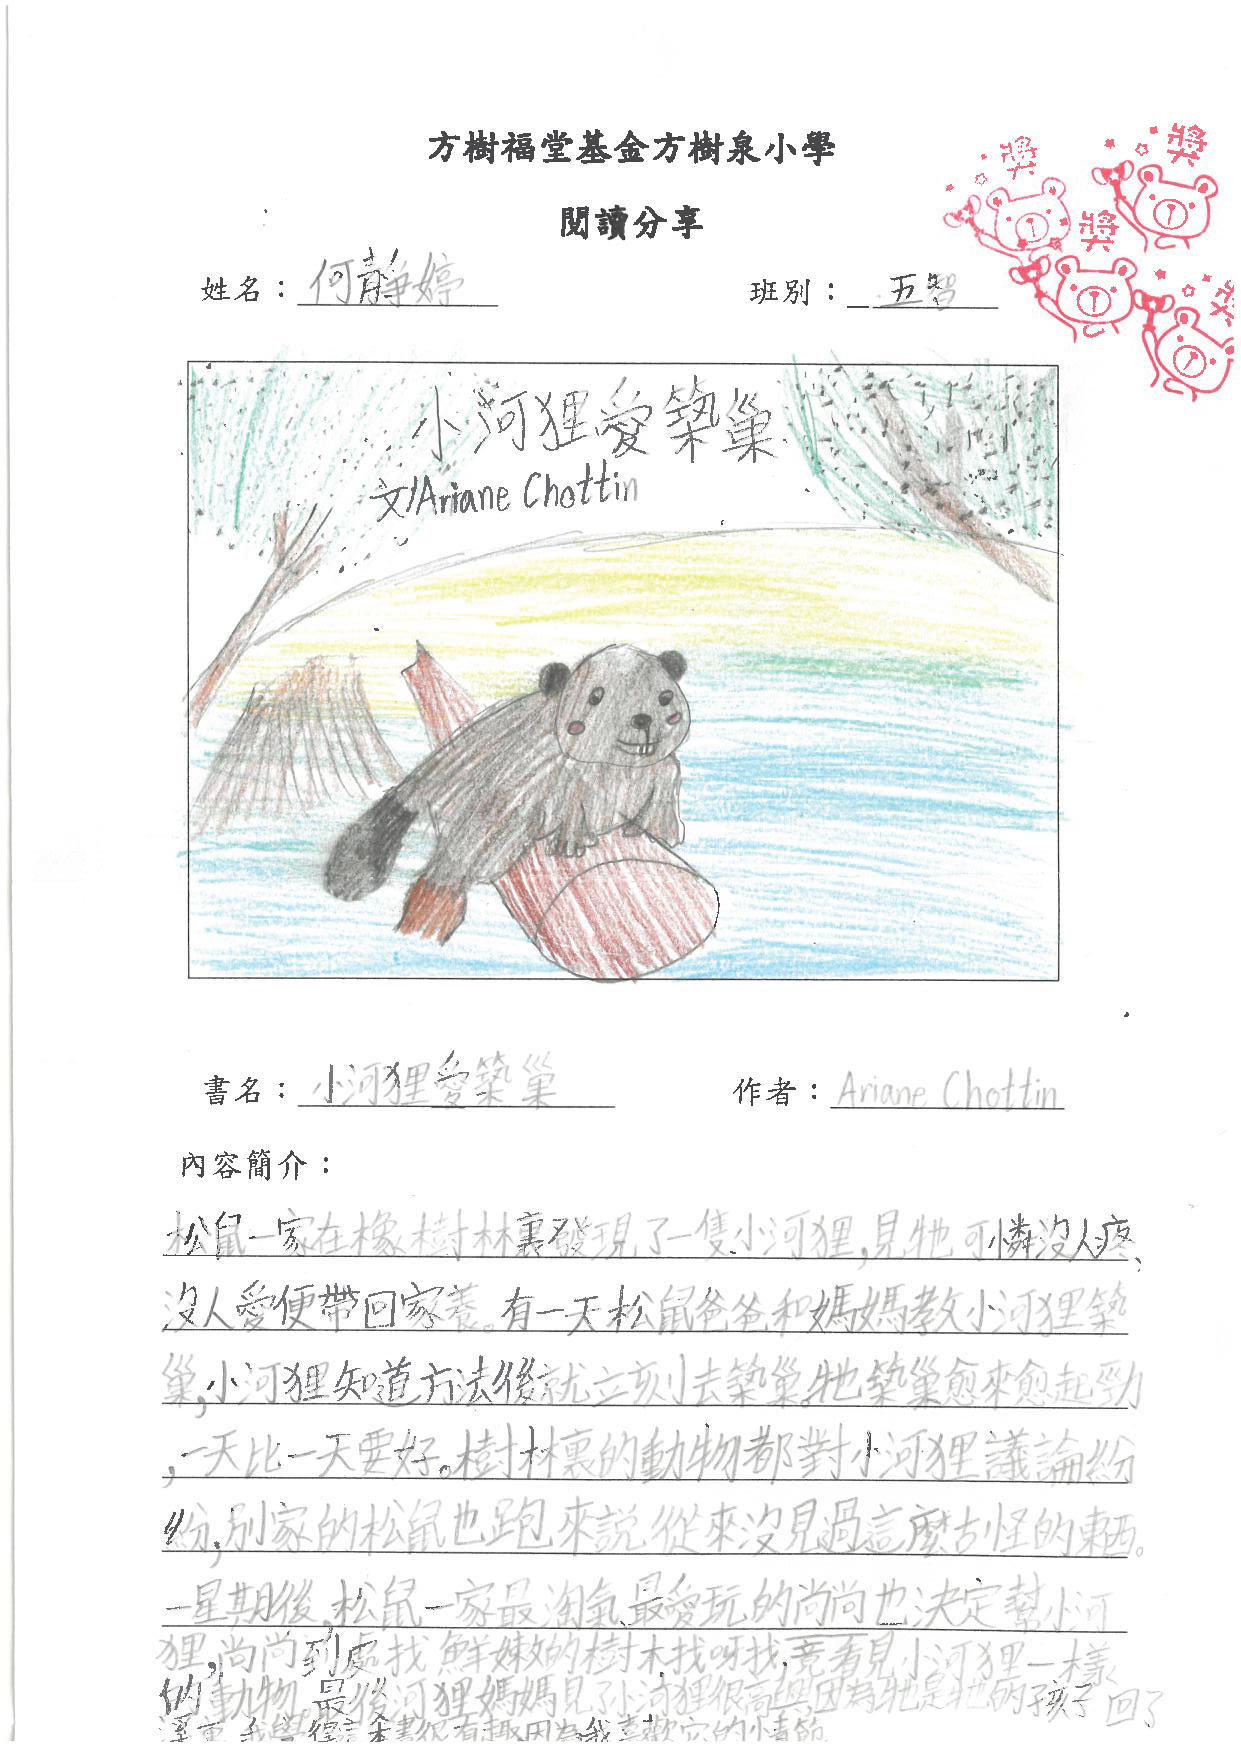 方樹福堂基金方樹泉小學
閱讀分享
獎
獎
獎
獎
姓名：何靜婷
班別：五智
小河狸愛築巢
文/Ariane Chottin
書名：小河狸愛築巢
作者：Ariane Chottin
內容簡介：
松鼠一家在橡樹林裏發現了一隻小河狸,見牠可憐沒人疼、
沒人愛便帶回家養。有一天松鼠爸爸和媽媽教小河狸築
巢,小河狸知道方法後就立刻去築巢。牠築巢愈來愈起勁
,一天比一天要好。樹林裏的動物都對小河狸議論紛
紛,別家的松鼠也跑來說從來沒見過這麼古怪的東西。
一星期後,松鼠一家最淘氣、最愛玩的尚尚也決定幫小河
狸,尚尚到處找鮮嫩的樹木找呀找,竟看見小河狸一樣
的動物。最後河狸媽媽見小河狸很高興因為牠是牠的孩子回了
我覺得這本書很有趣因為我喜歡它的小情節